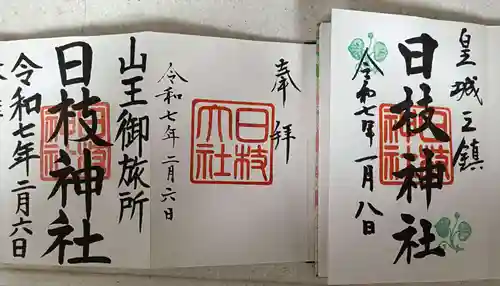 皇城之鎮
日枝神社
令和七年一月八日
奉拝
日枝大社
令和七年二月六日
山王御旅所
日枝神社
令和七年二月六日